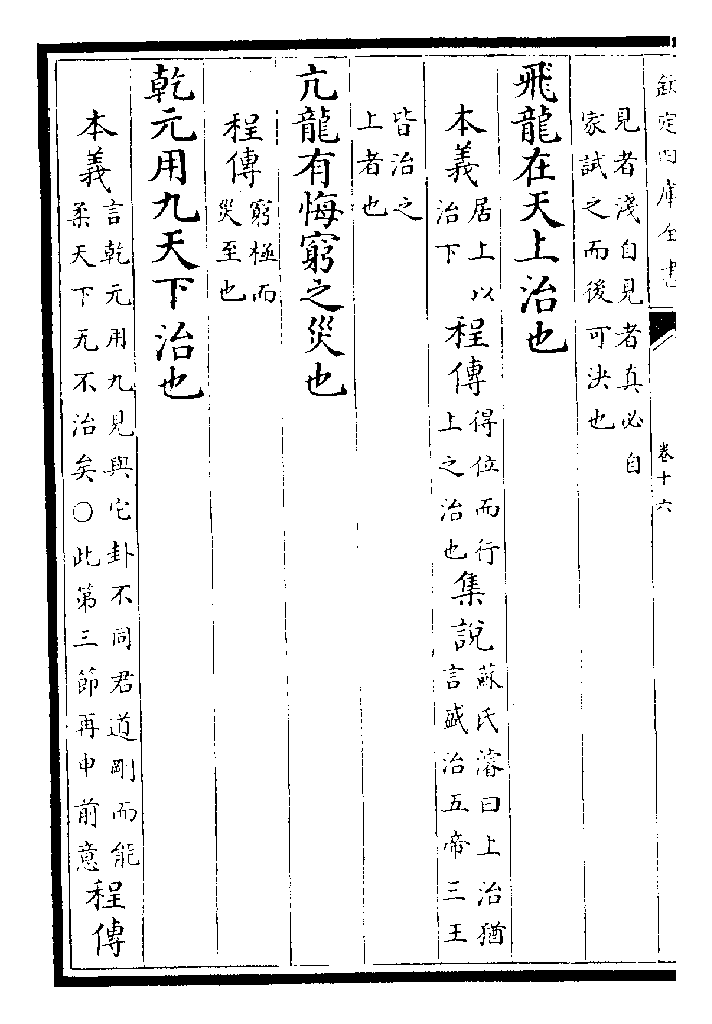 欽定四庫全書
卷十六
見者淺自見者真必自
家試之而後可決也
飛龍在天上治也
本義居上以
治下程傳得位而行
上之治也集說蘇氏濬曰上治猶
言盛治五帝三王
皆治之
上者也
亢龍有悔窮之災也
程傳窮極而
災至也
乾元用九天下治也
本義言乾元用九見與它卦不同君道剛而能
柔天下无不治矣○此第三節再申前意程傳